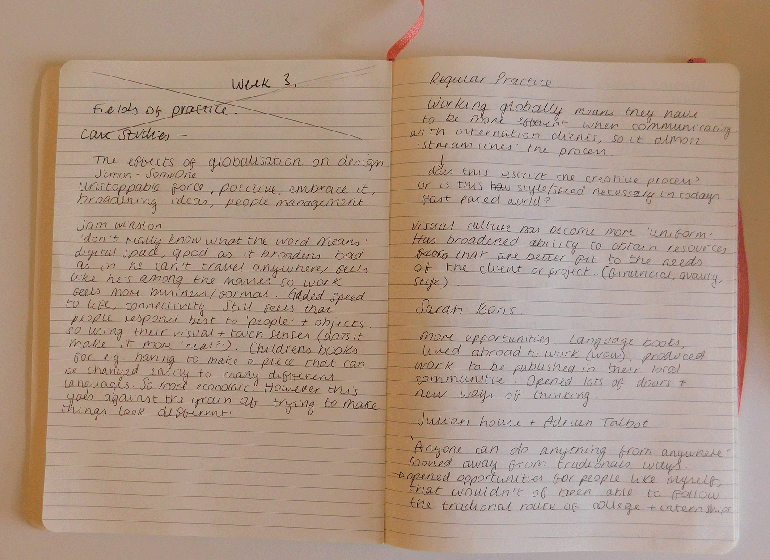 Week 3.
Fields of practice.
Case Studies -
The effects of globalisation on design
Simon - SomeOne
'unstoppable force, positive, embrace it,
broadning ideas, people management
Sam Winston
'don't really know what the word means'
digital good as it broadens bad
as in he can't travel anywhere/feels
like he's among the so work
feels more business/formal. Added speed
to life, connectivity. Still feels that
people response best to 'people' + objects.
so using their visual + touch senses (does it
make it more 'real'?). Childrens books
for e.g having to make a piece that can
be changed easily to many different
languages. So more economic. However this
goes against the grain of trying to make
things look different.
Regular Practice
Working globally means they have
to be more when communicating
with internation clients, so it almost
'streamlines' the process.
does this restrict the creative process?
or is this style/speed necessary in todays
fast paced world?
Visual culture has become more 'uniform'
Has broadened ability to obtain resources
that are better to the needs
of the client or project. (financial, quality,
style)
Sarah
More opportunities. Language books,
lived abroad + work (wow), produced
work to be published in their local
Opened lots of doors +
new ways of thinking
+ Adrien Talbot
'Anyone can do anything from anywhere'
moved away from tradionals ways
opened opportunities for people like myself,
that wouldn't of been able to follow
the tradional route of college + internships